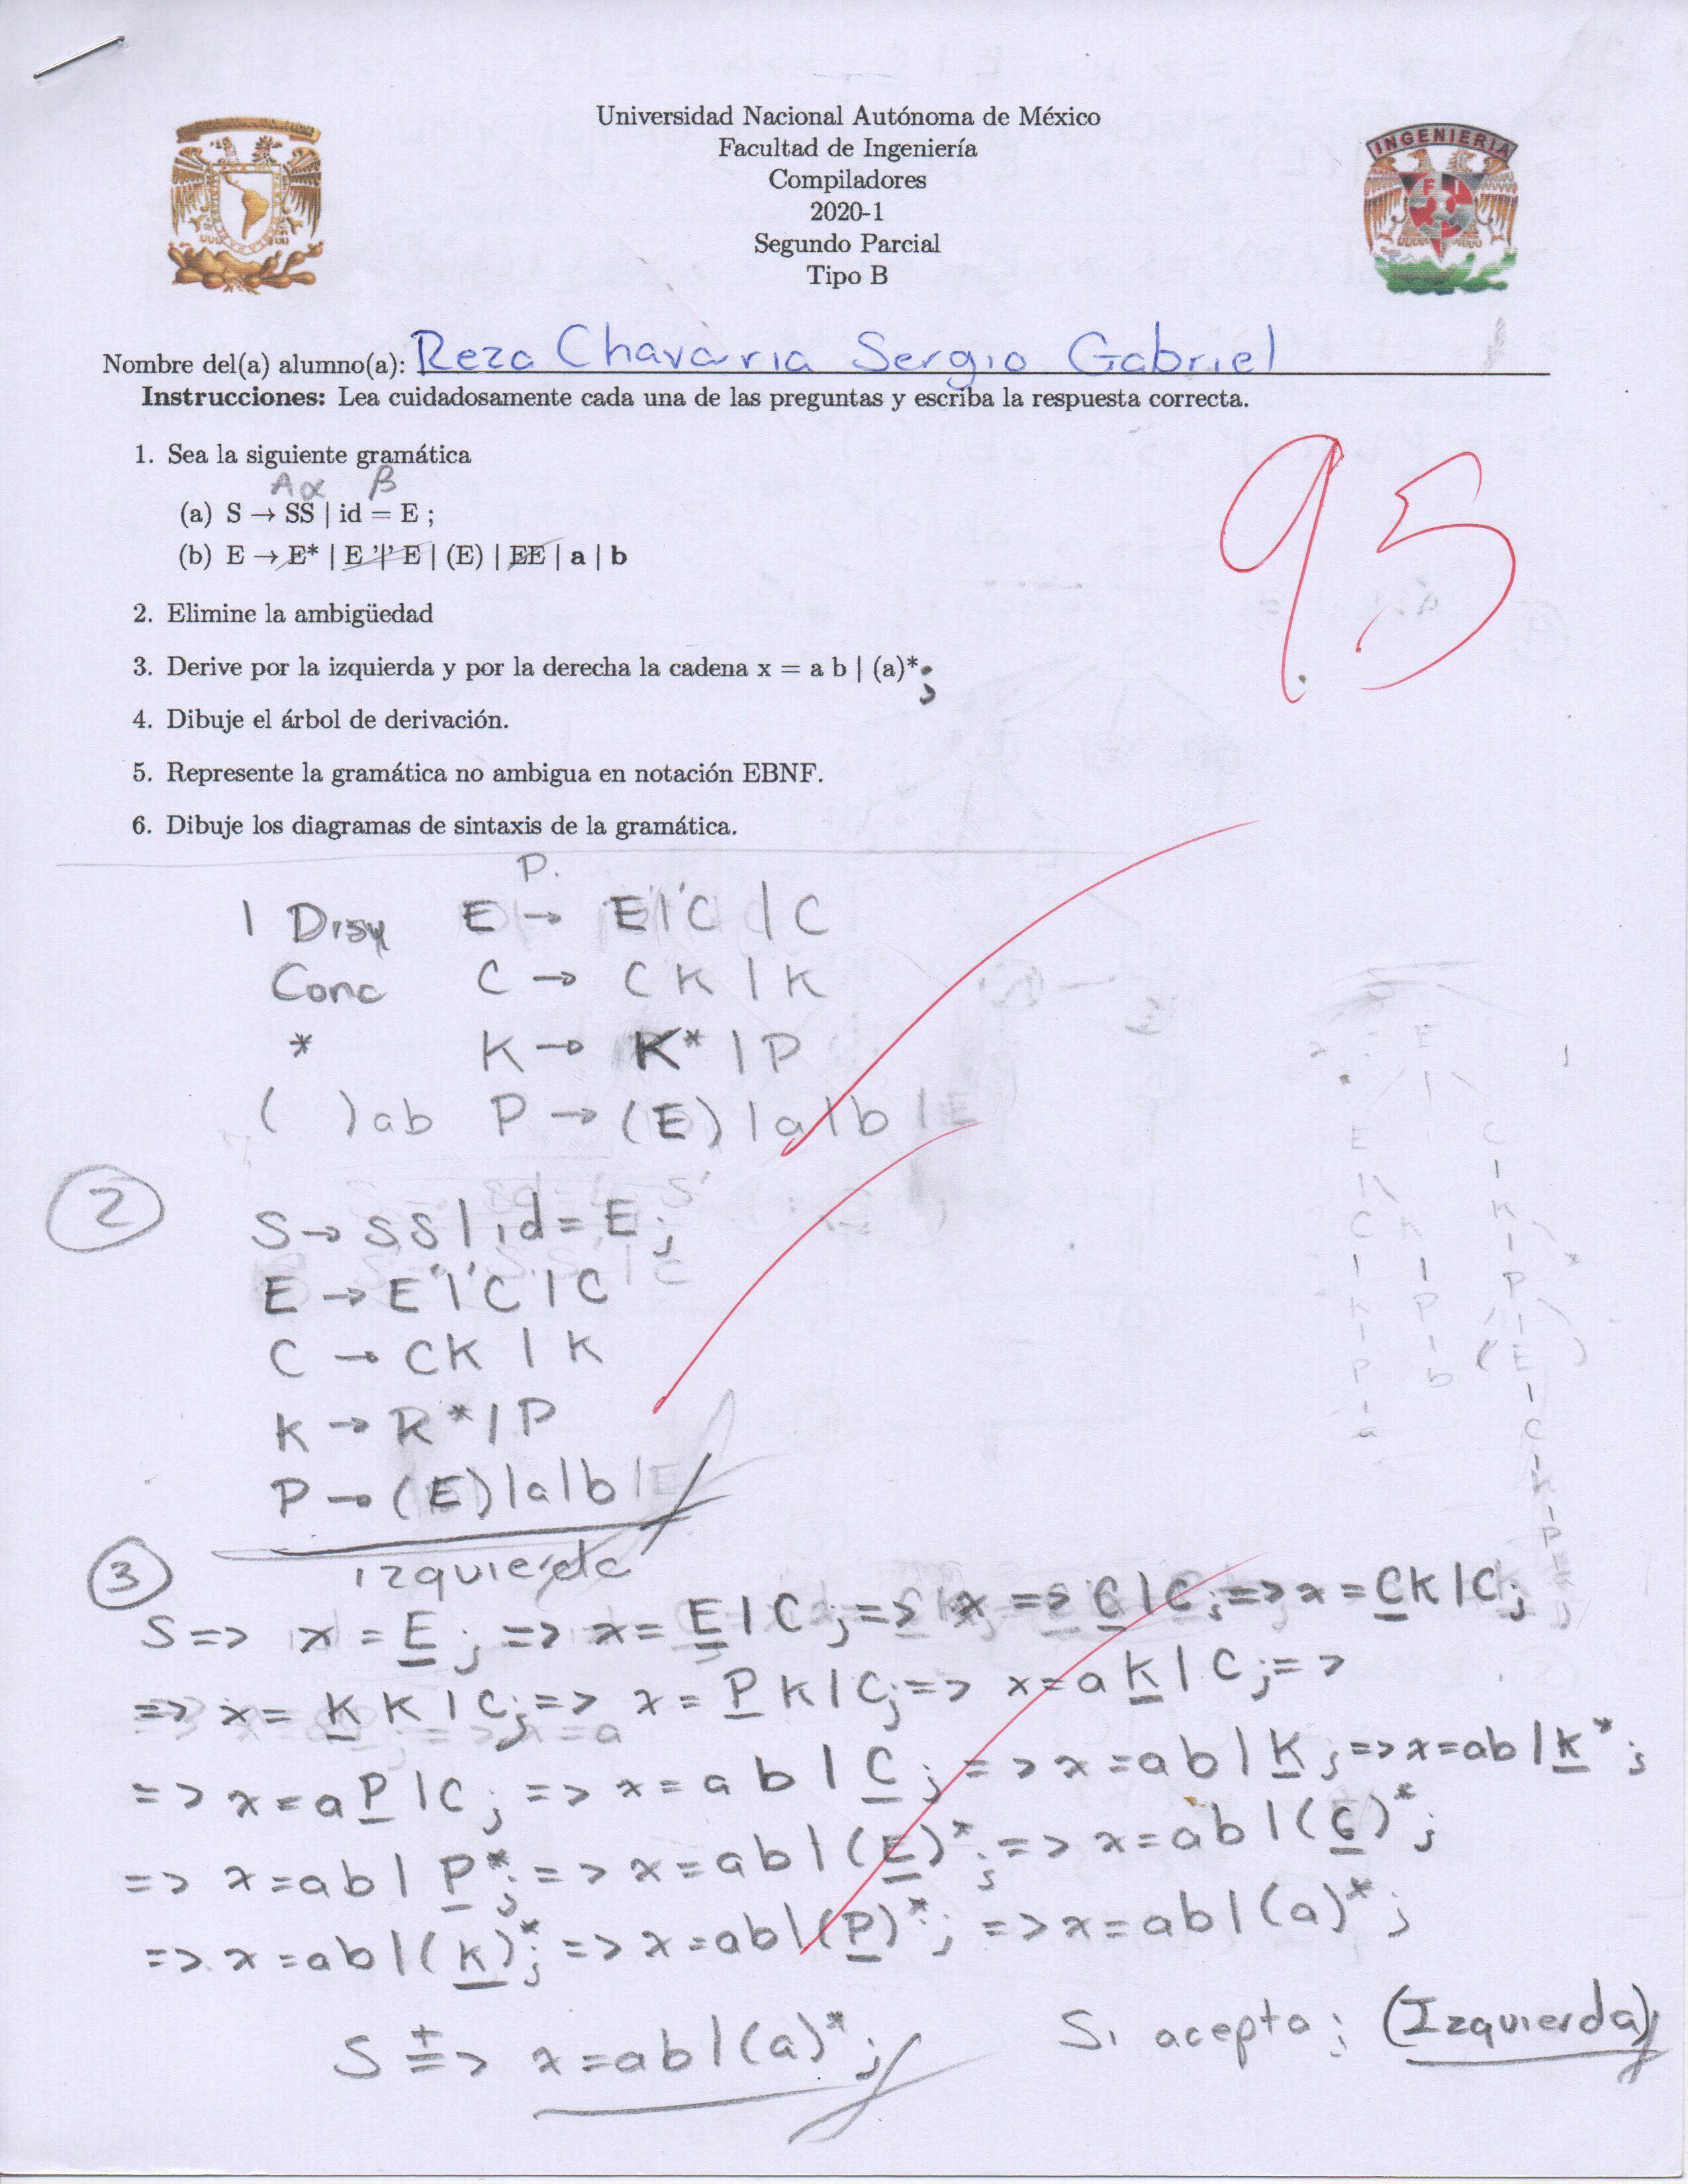 Universidad Nacional Autónoma de México
Facultad de Ingeniería
Compiladores
2020-1
Segundo Parcial
Tipo B
INGENIERIA
Nombre del(a) alumno(a): Reza Chavarria Sergio Gabriel
Instrucciones: Lea cuidadosamente cada una de las preguntas y escriba la respuesta correcta.
9.5
1. Sea la siguiente gramática
Aα β
(a) S → SS | id = E ;
(b) E → E* | E '|' E | (E) | EE | a | b
2. Elimine la ambigüedad
3. Derive por la izquierda y por la derecha la cadena x = a b | (a)*;
4. Dibuje el árbol de derivación.
5. Represente la gramática no ambigua en notación EBNF.
6. Dibuje los diagramas de sintaxis de la gramática.
P.
| Disy E → E'|'C | C
Conc C → CK | K
* K → K* | P
( ) ab P → (E) | a | b
2
S → SS | id = E ;
E → E'|'C | C
C → CK | K
K → K* | P
P → (E) | a | b
3 izquierda
S => x = E ; => x = E | C ; => x => C | C ; => x = CK | C ;
=> x = K K | C ; => x = P K | C ; => x = a K | C ; =>
=> x = a P | C ; => x = a b | C ; => x = a b | K ; => x = ab | K* ;
=> x = ab | P* ; => x = ab | (E)* ; => x = ab | (C)* ;
=> x = ab | (K)* ; => x = ab | (P)* ; => x = ab | (a)* ;
S +=> x = ab | (a)* ; Si acepta ; (Izquierda)